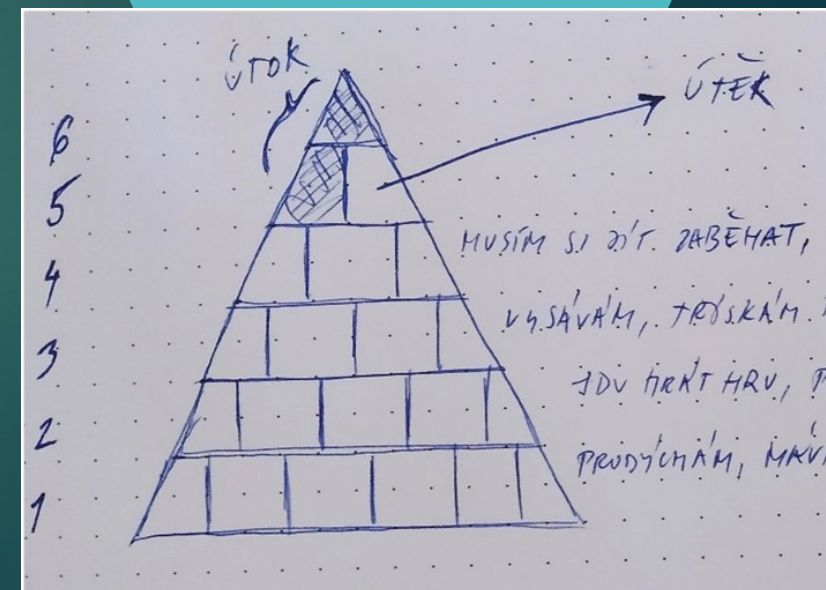 ÚTOK
ÚTĚK
6
5
4
MUSÍM SI JÍT ZABĚHAT,
3
VYSÁVÁM, TŘÍSKÁM
2
JDU HRÁT HRU,
1
PRODÝCHÁM,